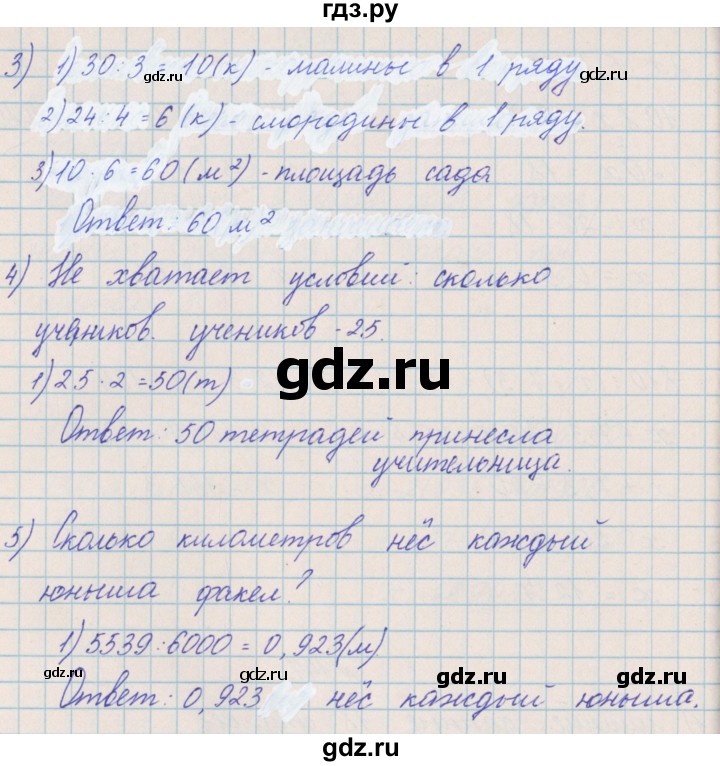 гдз.ру
3) 1) 30 : 3 = 10 (к) - малины в 1 ряду
gdz.ru
2) 24 : 4 = 6 (к) - смородины в 1 ряду.
gdz.ru
3) 10 · 6 = 60 (м²) - площадь сада
Ответ: 60 м²
4) Не хватает условий: сколько
учеников. учеников - 25.
1) 25 · 2 = 50 (т)
gdz.ru
Ответ: 50 тетрадей принесла
учительница.
5) Сколько километров нёс каждый
юныша факел?
1) 5539 : 6000 = 0,923 (м)
gdz.ru
gdz.ru
gdz.ru
Ответ: 0,923 нёс каждый юныша.
gdz.ru